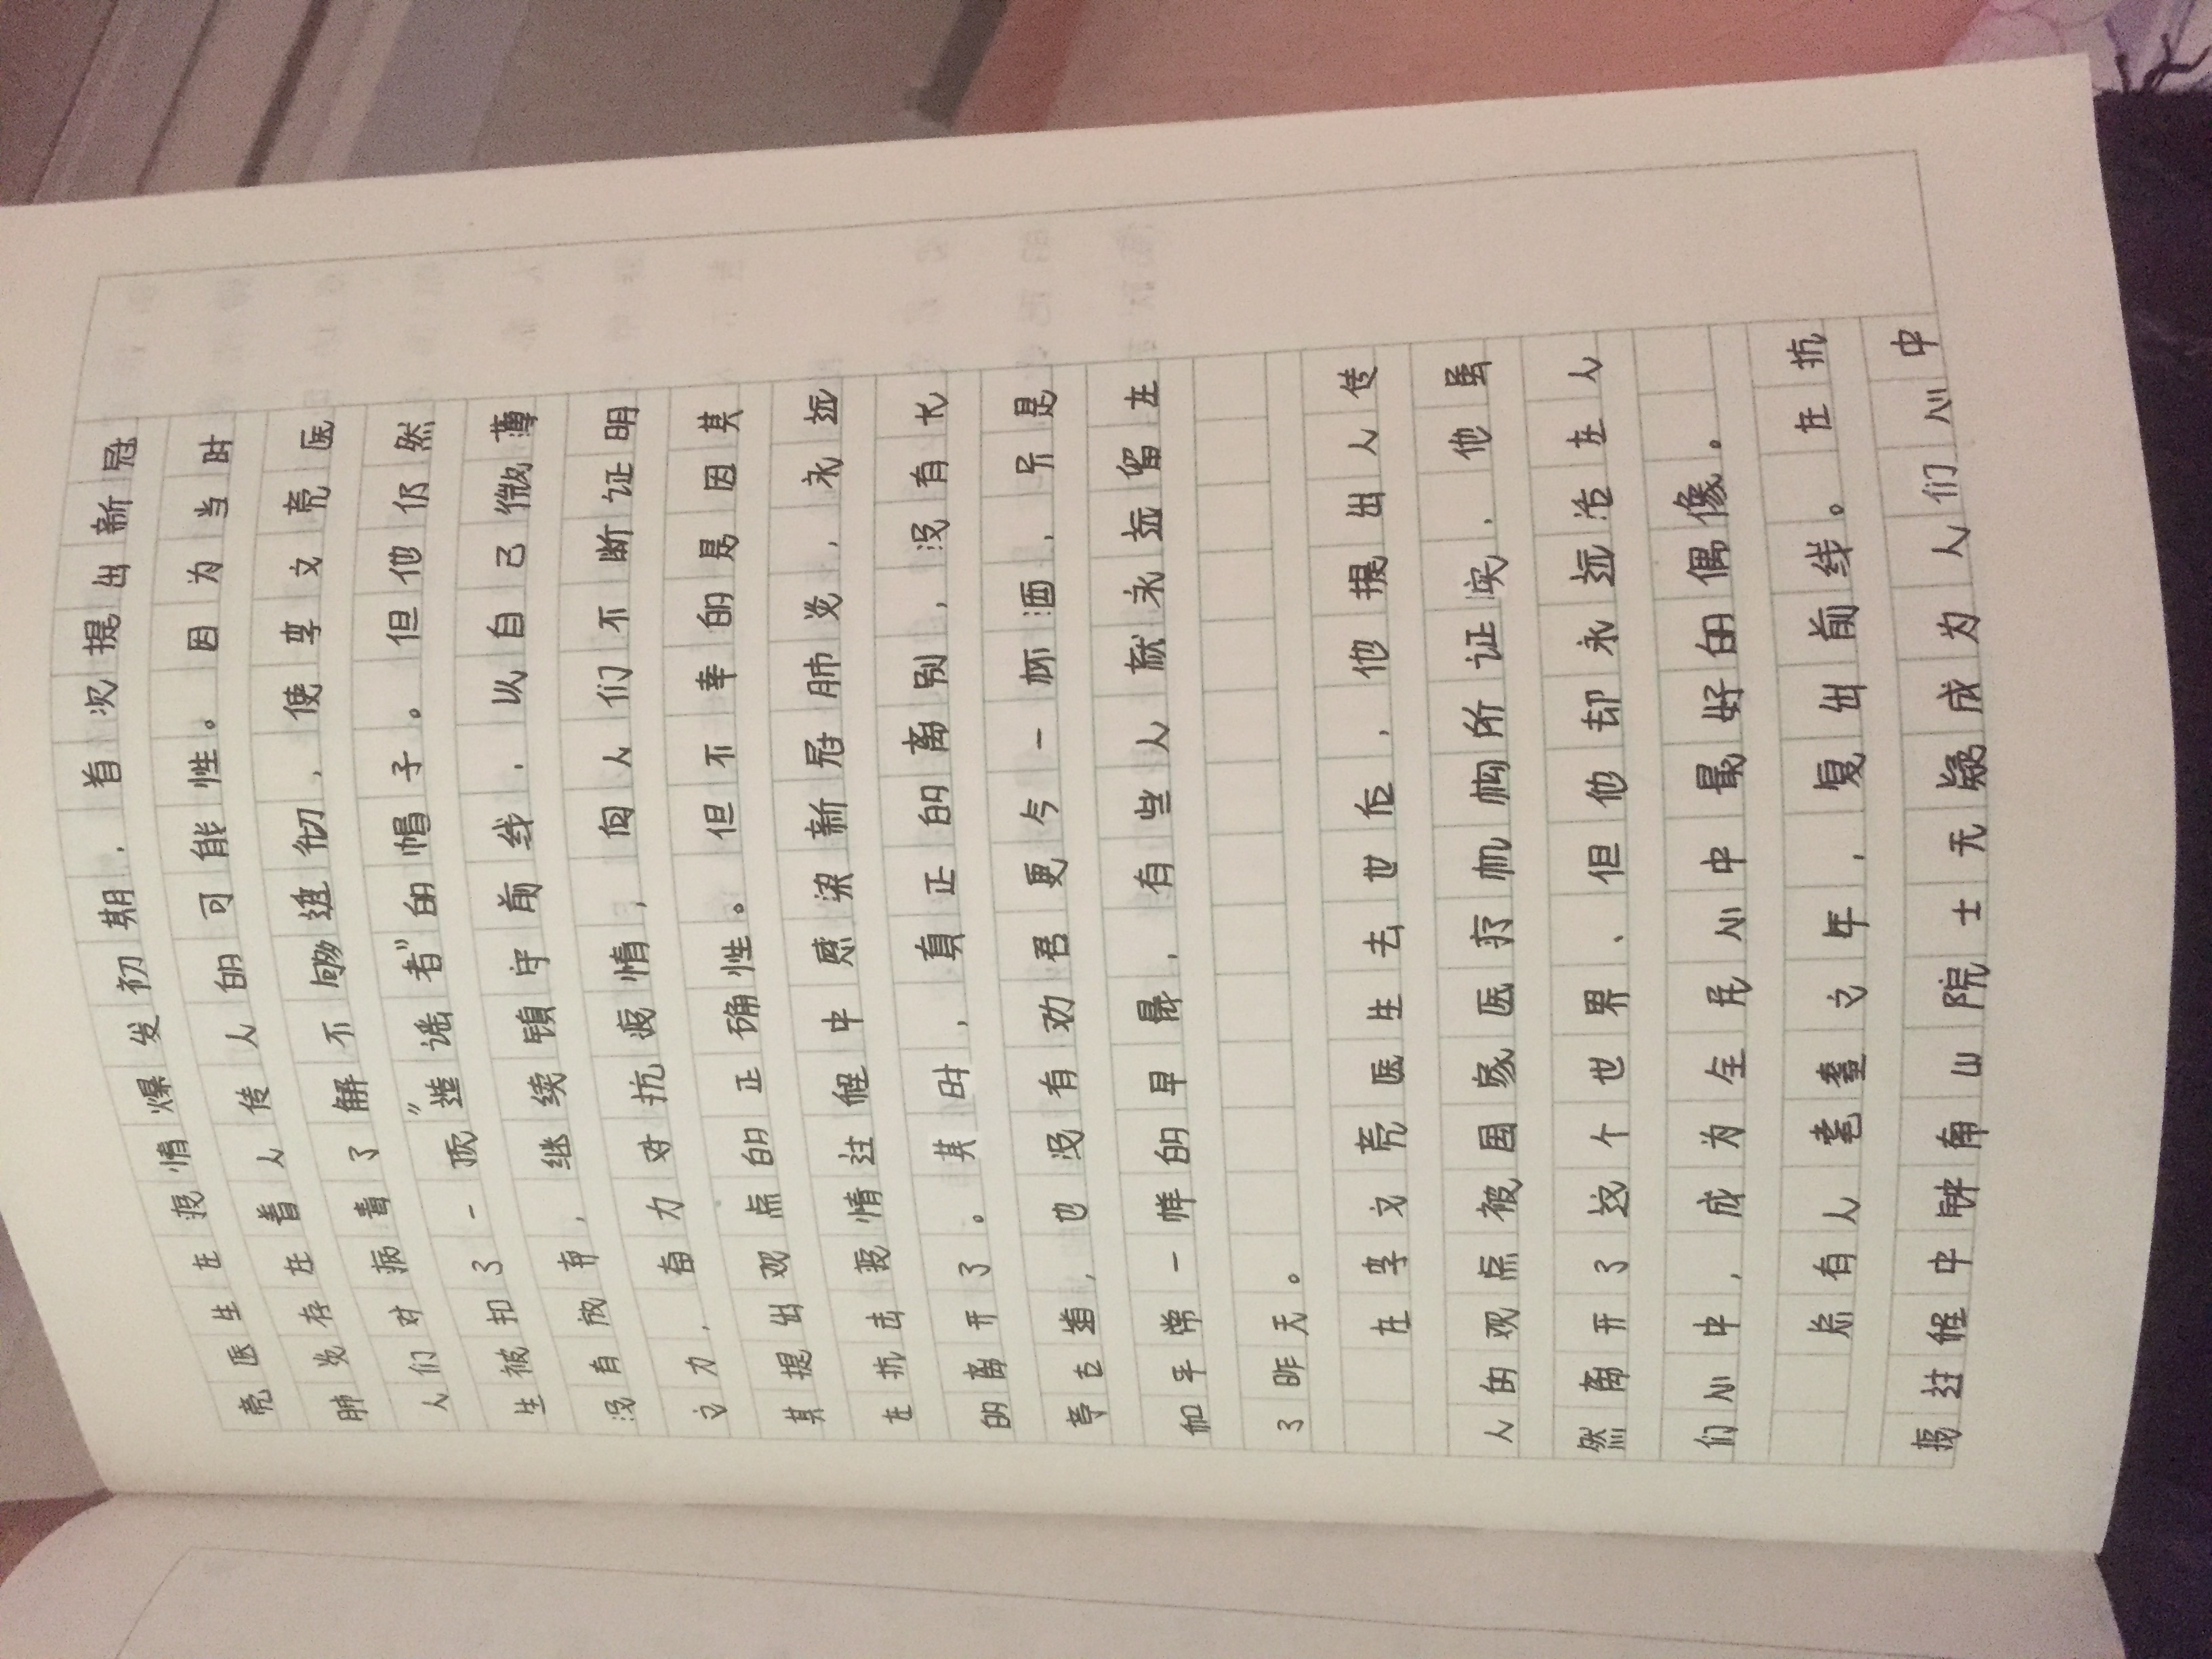 亮医生在疫情爆发初期，首次提出新冠
肺炎存在着人传人的可能性。因为当时
人们对病毒了解不够透彻，使李文亮医
生被扣了一顶“造谣者”的帽子。但他仍然
没有放弃，继续镇守前线，以自己微薄
之力，奋力对抗疫情，向人们不断证明
其提出观点的正确性。但不幸的是因其
在抗击疫情过程中感染新冠肺炎，永远
的离开了。其时，真正的离别，没有长
亭古道，也没有劝君更今一杯酒，只是
和平常一样的早晨，有些人就永远留在
了昨天。
在李文亮医生去世后，他提出人传
人的观点被国家医疗机构所证实，他虽
然离开了这个世界，但他却永远活在人
们心中，成为全民心中最好的偶像。
总有人耄耋之年，复出前线。在抗
疫过程中钟南山院士无疑成为人们心中